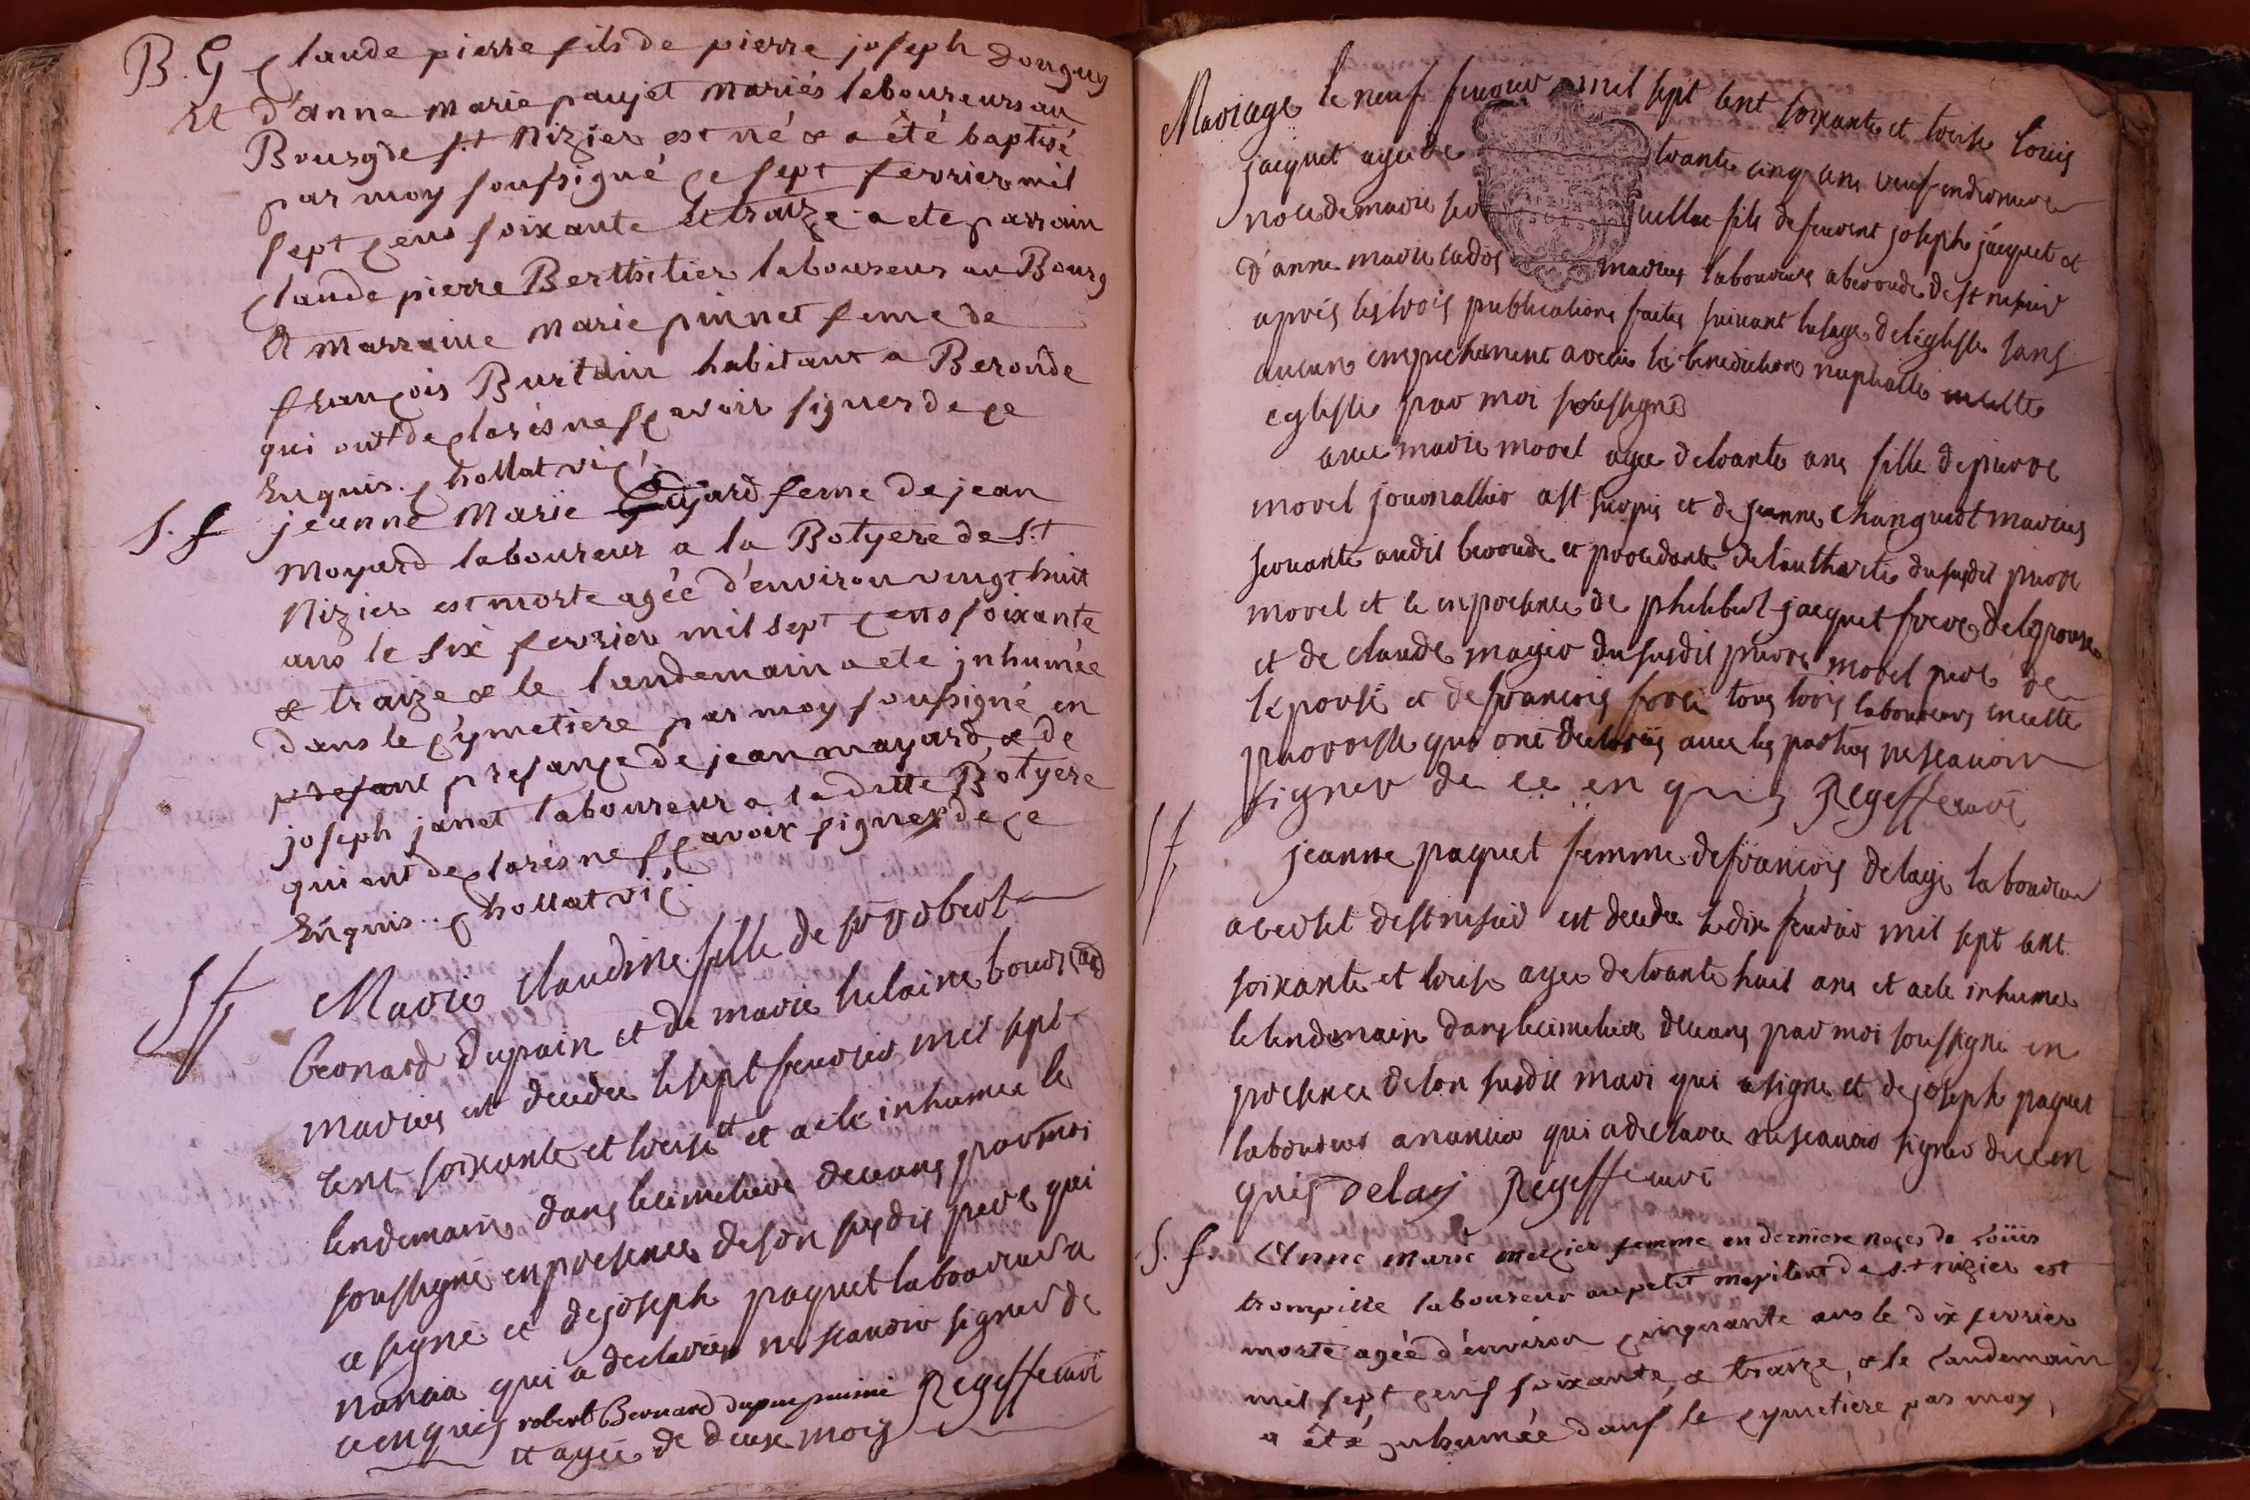 B. G Claude pierre fils de pierre joseph Donguy
Et d'anne Marie paujet mariés laboureurs au
Bourg de S.t Nizier est né & a êté baptisé
par moy soussigné ce sept fevrier mil
sept cens soixante & traize a ete parrain
Claude pierre Berthilier laboureur au Bourg
& marraine Marie pinnet feme de
françois Burtain habitant a Beronde
qui ont declarés ne sçavoir signer de ce
Enquis. Chollat vic.
S. f jeanne Marie Gujard feme de jean
Moyard laboureur a la Botyere de S.t
Nizier est morte agée d'environ vingt huit
ans le six fevrier mil sept cens soixante
& traize & le landemain a ete jnhumée
dans le cÿmetiere par moy soussigné en
presant presance de jean mayard, & de
joseph janet laboureur a la ditte Botyere
qui ont declarés ne sçavoir signer de ce
Enquis.. Chollat vic.
Sf Marie Claudine fille de sr robert
bernard dupuin et de marie helaine
maries est decedee le sept feuvrier mil sept
cent soixante et treise tt et a ete inhumee le
lendemain dans le cimetiere deceans par moi
soussigné en presence de son susdit pere qui
a signé et de joseph paquet laboureur a
nancia qui a declaré ne scauoir signer de
ce enquis robert Bernard Regeffe curé
tt agee de deux mois
Mariage le neuf feuvrier mil sept cent soixante et treise louis
jacquet agee de trante cinq ans veuf en derniere
noce de marie fils de feuvent joseph jacquet et
d'anne marie cador maries laboureurs a beronde de st nisier
après les trois publications faites suivant lusage de léglisse sans
aucun empechement a recu la benediction nuptialle en cette
eglisse par moi soussigné
avec marie morel agee de trante ans fille de pierre
morel journallier ast surpis et de jeanne changuet maries
servante audit beronde et procedante de lauthorité du susdit pierre
morel et ce en presence de philibert jacquet frere de lepoux
et de claude magio du susdit pierre morel pere de
lepouse et de francois tous trois laboureurs en cette
parroisse qui ont declarés avec les parties ne scauoir
signer de ce en quis Regeffe curé
Sf jeanne paquet femme de francois delaye laboureur
a becset de st nisier est decedee le dix feuvrier mil sept cent
soixante et treise agee de trante huit ans et a ete inhumee
le lendemain dans le cimetiere deceans par moi soussigne en
presence de son susdit mari qui a signe et de joseph paquet
laboureur a nancia qui a declaré ne scauoir signer de ce en
quis Delay Regeffe curé
S. f. Anne marie mercier femme en derniere noçes de Loüis
trompille laboureur au petit mepilant de s.t nizier est
morte agée d'énviron cinquante ans le dix fevrier
mil sept cens soixante, & traize, & le landemain
a été jnhumée dans le cymetiere par moy,